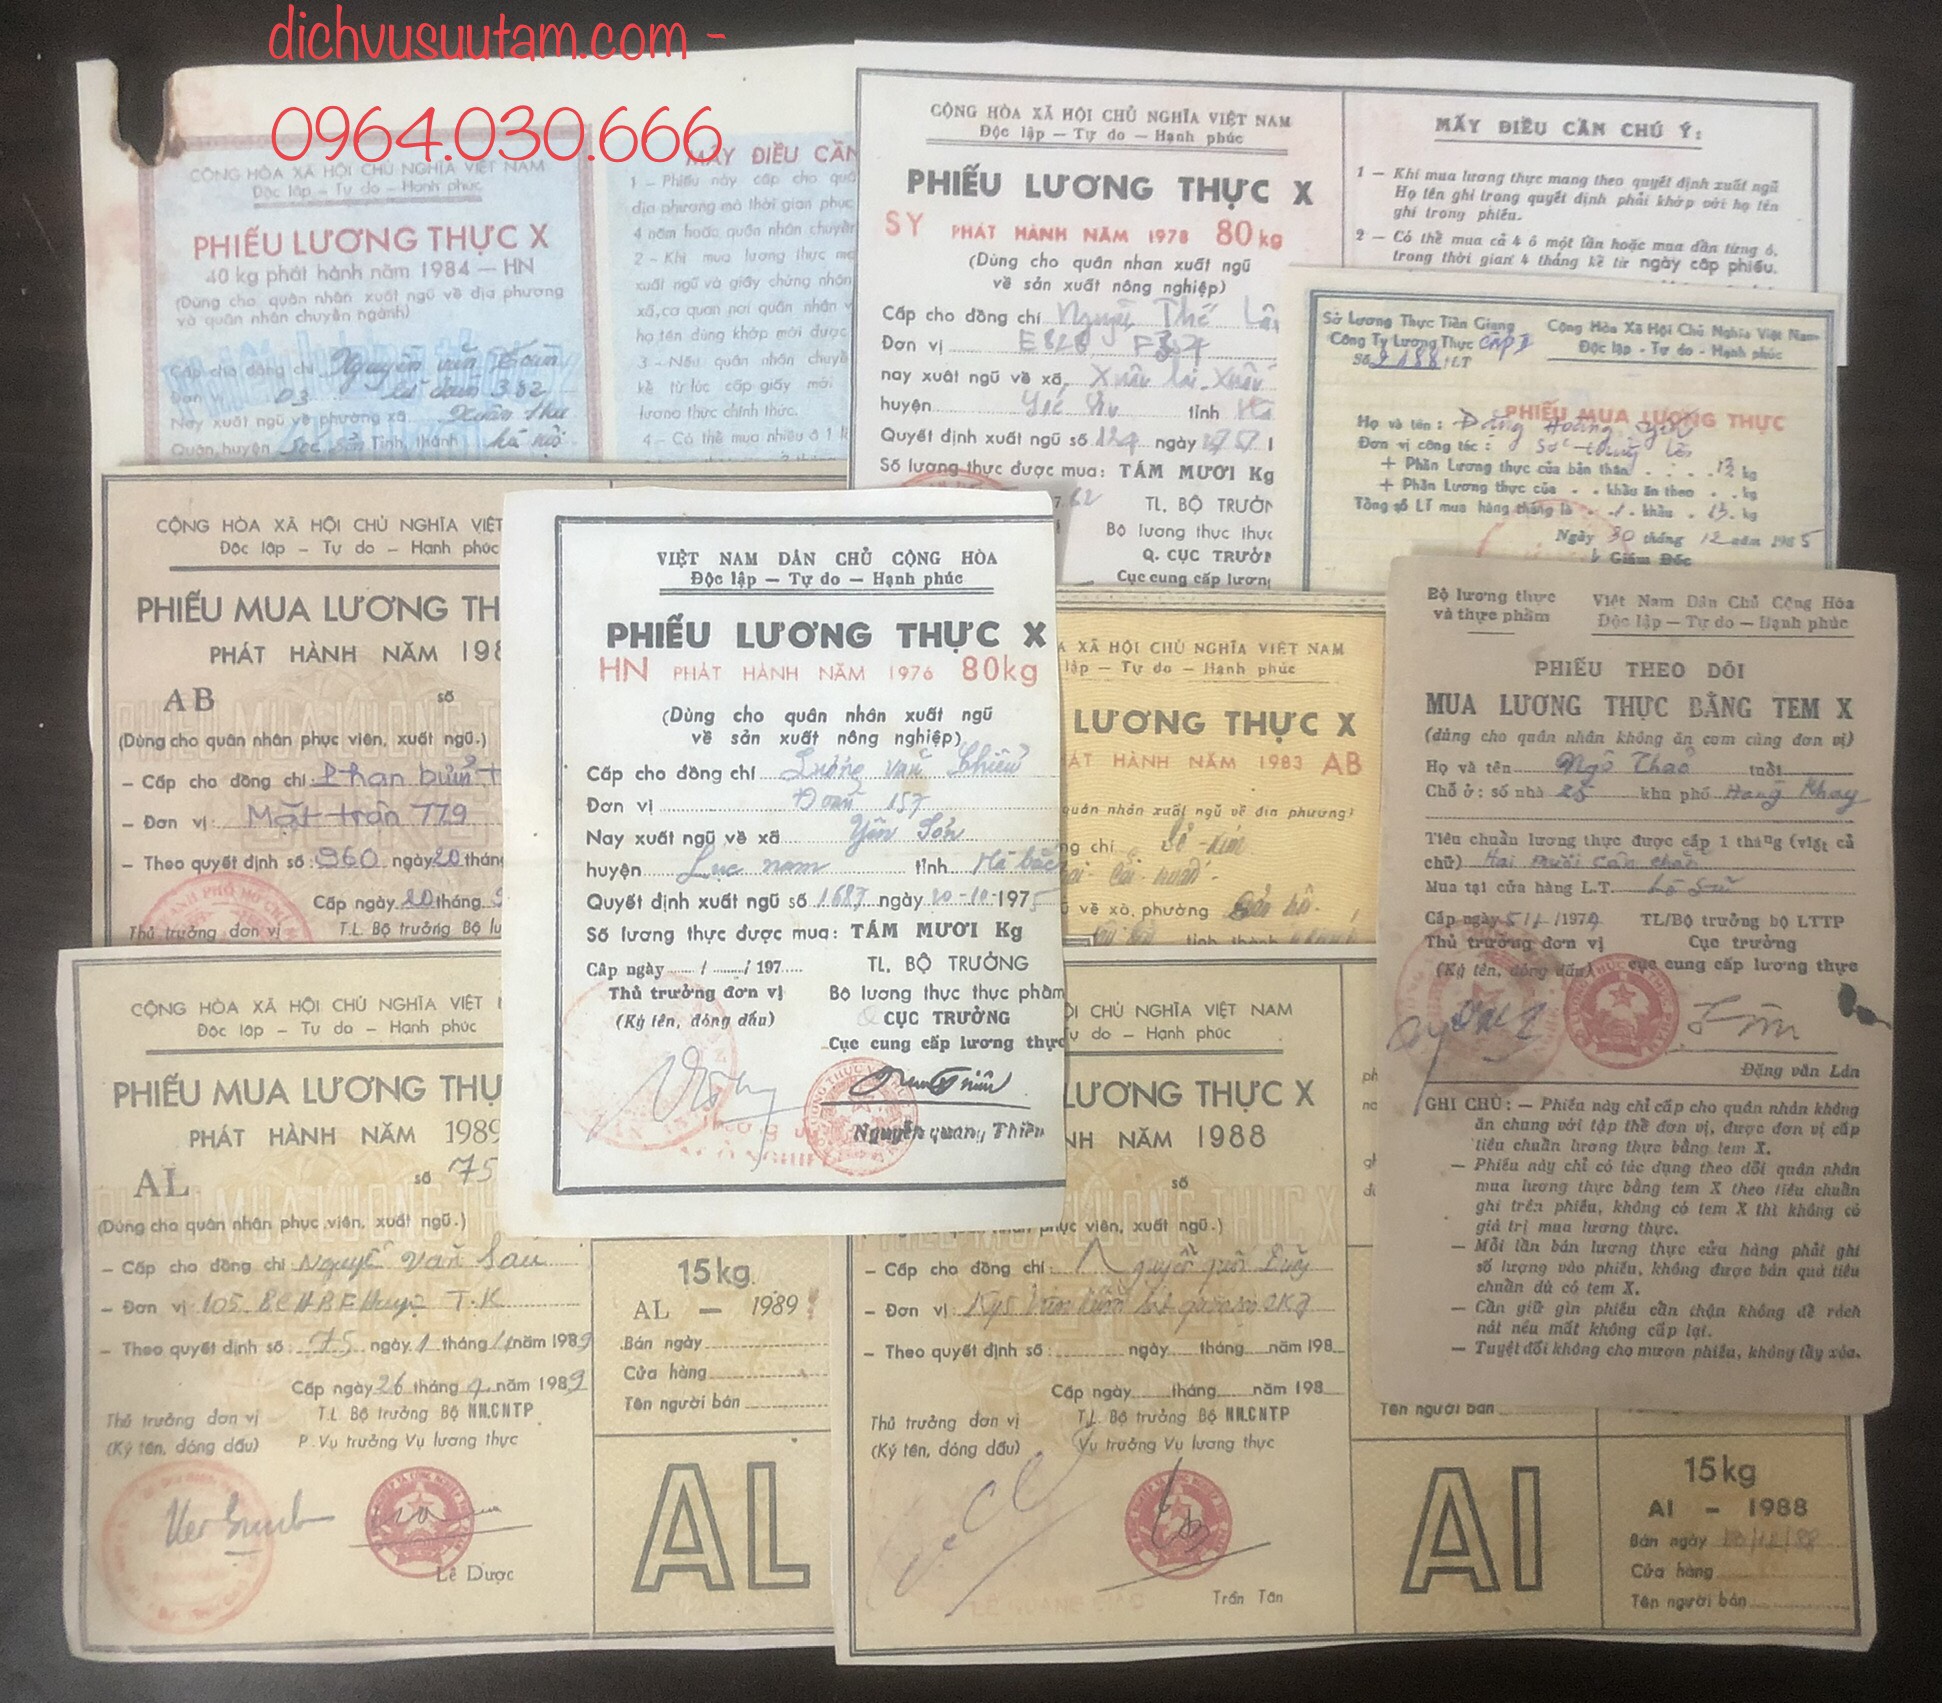 dichvusuutam.com -
0964.030.666
CỘNG HÒA XÃ HỘI CHỦ NGHĨA VIỆT NAM
Độc lập – Tự do – Hạnh phúc
PHIẾU LƯƠNG THỰC X
40 kg phát hành năm 1984 – HN
(Dùng cho quân nhân xuất ngũ về địa phương
và quân nhân chuyển ngành)
Cấp cho đồng chí Nguyễn văn
Đơn vị D3 382
Nay xuất ngũ về phường xã Xuân thu
Quận, huyện Sóc sơn Tỉnh, thành hà nội
MẤY ĐIỀU CẦN
1 – Phiếu này cấp cho quâ
địa phương mà thời gian phục
4 năm hoặc quân nhân chuyển
2 – Khi mua lương thực ma
xuất ngũ và giấy chứng nhận
xã, cơ quan nơi quân nhân v
họ tên dùng khớp mới được
3 – Nếu quân nhân chuyể
kể từ lúc cấp giấy mới
lương thực chính thức.
4 – Có thể mua nhiều ô 1 l
CỘNG HÒA XÃ HỘI CHỦ NGHĨA VIỆT NAM
Độc lập – Tự do – Hạnh phúc
PHIẾU LƯƠNG THỰC X
SY PHÁT HÀNH NĂM 1978 80kg
(Dùng cho quân nhan xuất ngũ
về sản xuất nông nghiệp)
Cấp cho đồng chí Nguyễn Thế
Đơn vị E828
nay xuất ngũ về xã
huyện tỉnh
Quyết định xuất ngũ số ngày
Số lượng thực được mua: TÁM MƯƠI Kg
TL. BỘ TRƯỞN
Bộ lương thực thực
Q. CỤC TRƯỞN
Cục cung cấp lương
MẤY ĐIỀU CẦN CHÚ Ý:
1 – Khi mua lương thực mang theo quyết định xuất ngũ
Họ tên ghi trong quyết định phải khớp với họ tên
ghi trong phiếu.
2 – Có thể mua cả 4 ô một lần hoặc mua dần từng ô,
trong thời gian 4 tháng kể từ ngày cấp phiếu.
Sở Lương Thực Tiền Giang
Công Ty Lương Thực CẤP I
Số 2188/LT
Cộng Hòa Xã Hội Chủ Nghĩa Việt Nam
Độc lập - Tự do - Hạnh phúc
PHIẾU MUA LƯƠNG THỰC
Họ và tên : Đặng Hoàng
Đơn vị công tác :
+ Phần Lương thực của bản thân . . . 13 kg
+ Phần Lương thực của . . khẩu ăn theo . . kg
Tổng số LT mua hàng tháng là . 1 . khẩu . 13. kg
Ngày 30 tháng 12 năm 1985
Giám Đốc
CỘNG HÒA XÃ HỘI CHỦ NGHĨA VIỆT
Độc lập – Tự do – Hạnh phúc
PHIẾU MUA LƯƠNG TH
PHÁT HÀNH NĂM 198
AB số
(Dùng cho quân nhân phục viên, xuất ngũ.)
– Cấp cho đồng chí: Phan bửu
– Đơn vị: Mặt trận 779
– Theo quyết định số: 960 ngày 20 tháng
Cấp ngày 20 tháng
Thủ trưởng đơn vị T.L. Bộ trưởng Bộ lư
VIỆT NAM DÂN CHỦ CỘNG HÒA
Độc lập – Tự do – Hạnh phúc
PHIẾU LƯƠNG THỰC X
HN PHÁT HÀNH NĂM 1976 80kg
(Dùng cho quân nhân xuất ngũ
về sản xuất nông nghiệp)
Cấp cho đồng chí Lương văn
Đơn vị Đoàn 157
Nay xuất ngũ về xã Yên Sơn
huyện Lục nam tỉnh Hà bắc
Quyết định xuất ngũ số 1687 ngày 20-10-1975
Số lương thực được mua: TÁM MƯƠI Kg
Cấp ngày / / 197
Thủ trưởng đơn vị
(Ký tên, đóng dấu)
TL. BỘ TRƯỞNG
Bộ lương thực thực phẩm
CỤC TRƯỞNG
Cục cung cấp lương thực
Nguyễn quang Thiên
Á XÃ HỘI CHỦ NGHĨA VIỆT NAM
lập – Tự do – Hạnh phúc
LƯƠNG THỰC X
ÁT HÀNH NĂM 1983 AB
quân nhân xuất ngũ về địa phương)
ng chí
ũ về xã, phường
tỉnh thành
Bộ lương thực
và thực phẩm
Việt Nam Dân Chủ Cộng Hòa
Độc lập – Tự do – Hạnh phúc
PHIẾU THEO DÕI
MUA LƯƠNG THỰC BẰNG TEM X
(dùng cho quân nhân không ăn cơm cùng đơn vị)
Họ và tên Ngô Thảo tuổi
Chỗ ở: số nhà 25 khu phố Hàng Khay
Tiêu chuẩn lương thực được cấp 1 tháng (viết cả
chữ) Hai mười cân chẵn
Mua tại cửa hàng L.T. Lò Sũ
Cấp ngày 5/1/1979 TL/Bộ trưởng bộ LTTP
Thủ trưởng đơn vị Cục trưởng
(Ký tên, đóng dấu) cục cung cấp lương thực
Đặng văn Lân
GHI CHÚ: – Phiếu này chỉ cấp cho quân nhân không
ăn chung với tập thể đơn vị, được đơn vị cấp
tiêu chuẩn lương thực bằng tem X.
– Phiếu này chỉ có tác dụng theo dõi quân nhân
mua lương thực bằng tem X theo tiêu chuẩn
ghi trên phiếu, không có tem X thì không có
giá trị mua lương thực.
– Mỗi lần bán lương thực cửa hàng phải ghi
số lượng vào phiếu, không được bán quá tiêu
chuẩn dù có tem X.
– Cần giữ gìn phiếu cẩn thận không để rách
nát nếu mất không cấp lại.
– Tuyệt đối không cho mượn phiếu, không tẩy xóa.
CỘNG HÒA XÃ HỘI CHỦ NGHĨA VIỆT
Độc lập – Tự do – Hạnh phúc
PHIẾU MUA LƯƠNG THỰ
PHÁT HÀNH NĂM 1989
AL số 75
(Dùng cho quân nhân phục viên, xuất ngũ.)
– Cấp cho đồng chí Nguyễn văn Sáu
– Đơn vị: 105. BCHBF Huyện T.K
– Theo quyết định số : 75 ngày 1 tháng năm 1989
Cấp ngày 26 tháng năm 1989
Thủ trưởng đơn vị
(Ký tên, đóng dấu)
T.L Bộ trưởng Bộ NN.CNTP
P. Vụ trưởng Vụ lương thực
Lê Dược
15kg.
AL – 1989
Bán ngày
Cửa hàng
Tên người bán
AL
ỘI CHỦ NGHĨA VIỆT NAM
ự do – Hạnh phúc
LƯƠNG THỰC X
NH NĂM 1988
số
ục viên, xuất ngũ.)
– Cấp cho đồng chí: Nguyễn
– Đơn vị:
– Theo quyết định số : ngày tháng năm 198
Cấp ngày tháng năm 198
Thủ trưởng đơn vị
(Ký tên, đóng dấu)
T.L. Bộ trưởng Bộ NN.CNTP
Vụ trưởng Vụ lương thực
Trần Tân
Tên người bán
AI
15kg
AI – 1988
Bán ngày
Cửa hàng
Tên người bán